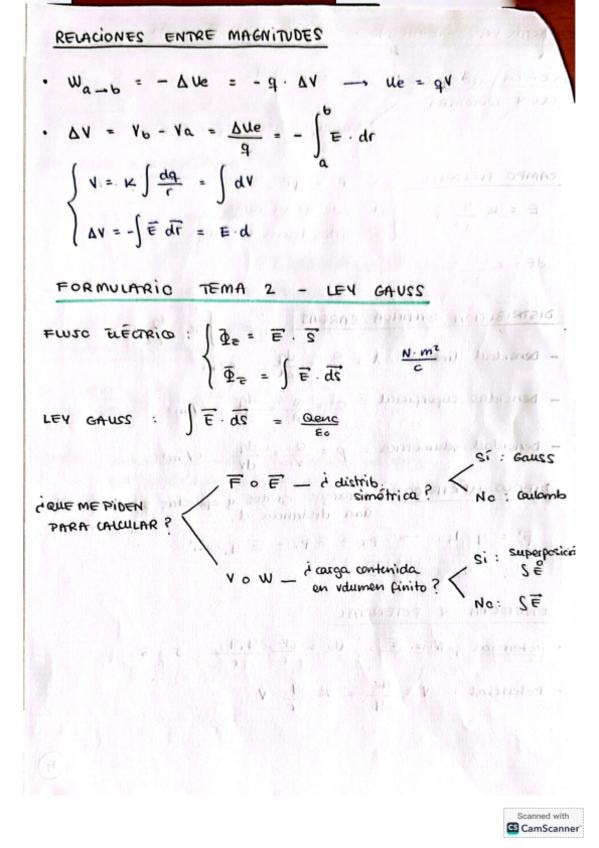 RELACIONES ENTRE MAGNITUDES
• Wa→b = - ΔUe = - q · ΔV → Ue = qV
• ΔV = Vb - Va = ΔUe/q = - ∫_a^b E · dr
V = K ∫ dq/r = ∫ dV
ΔV = - ∫ E⃗ dr⃗ = E · d
FORMULARIO TEMA 2 - LEY GAUSS
FLUJO ELÉCTRICO : Φ_E = E⃗ · S⃗
Φ_E = ∫ E⃗ · ds⃗ N·m²/C
LEY GAUSS : ∫ E⃗ · ds⃗ = Qenc/ε0
¿QUE ME PIDEN
PARA CALCULAR?
F⃗ o E⃗ — ¿distrib.
simétrica?
Sí : Gauss
No : Coulomb
V o W — ¿carga contenida
en volumen finito?
Si : superposició
o
∫E⃗
No: ∫E⃗
Scanned with
CS CamScanner